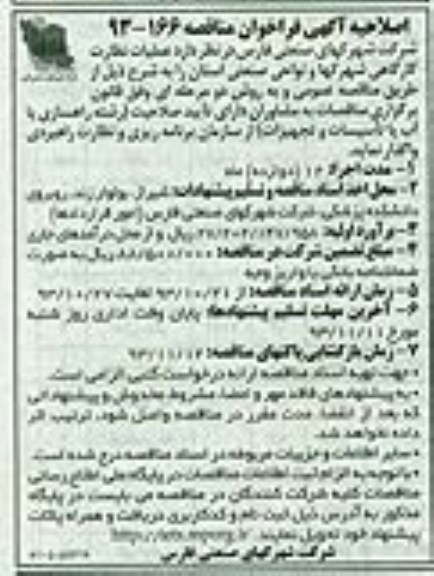 اصلاحیه آگهی فراخوان مناقصه ۱۶۶-۹۳
شرکت شهرکهای صنعتی فارس در نظر دارد عملیات نظارت
کارگاهی شهرکها و نواحی صنعتی استان را به شرح ذیل از
طریق مناقصه عمومی و به روش دو مرحله ای وفق قانون
برگزاری مناقصات به مشاوران دارای تأیید صلاحیت (رشته راهسازی یا
آب یا تأسیسات و تجهیزات) از سازمان برنامه ریزی و نظارت راهبردی
واگذار نماید.
۱- مدت اجرا: ۱۲ (دوازده) ماه
۲- محل اخذ اسناد مناقصه و تسلیم پیشنهادات: شیراز، بولوار زند، روبروی
دانشکده پزشکی، شرکت شهرکهای صنعتی فارس (امور قراردادها)
۳- برآورد اولیه: ریال و از محل درآمدهای جاری
۴- مبلغ تضمین شرکت در مناقصه: ریال به صورت
ضمانتنامه بانکی یا واریز وجه
۵- زمان ارائه اسناد مناقصه: از ۹۳/۱۰/۲۱ لغایت ۹۳/۱۰/۲۷
۶- آخرین مهلت تسلیم پیشنهادها: پایان وقت اداری روز شنبه
مورخ ۹۳/۱۱/۱۱
۷- زمان بازگشایی پاکتهای مناقصه: ۹۳/۱۱/۱۲
• جهت تهیه اسناد مناقصه ارایه درخواست کتبی الزامی است.
• به پیشنهادهای فاقد مهر و امضا، مشروط، مخدوش و پیشنهاداتی
که بعد از انقضا مدت مقرر در مناقصه واصل شود، ترتیب اثر
داده نخواهد شد.
• سایر اطلاعات و جزییات مربوطه در اسناد مناقصه درج شده است.
• با توجه به الزام ثبت اطلاعات مناقصات در پایگاه ملی اطلاع رسانی
مناقصات کلیه شرکت کنندگان در مناقصه می بایست در پایگاه
مذکور به آدرس ذیل ثبت نام و کد کاربری دریافت و همراه پاکت
پیشنهاد خود تحویل نمایند.
شرکت شهرکهای صنعتی فارس